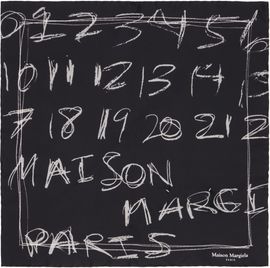 0 1 2 3 4 5 6
10 11 12 13 14 15
7 18 19 20 21 2
MAISON
MARGI
PARIS
Maison Margiela
PARIS